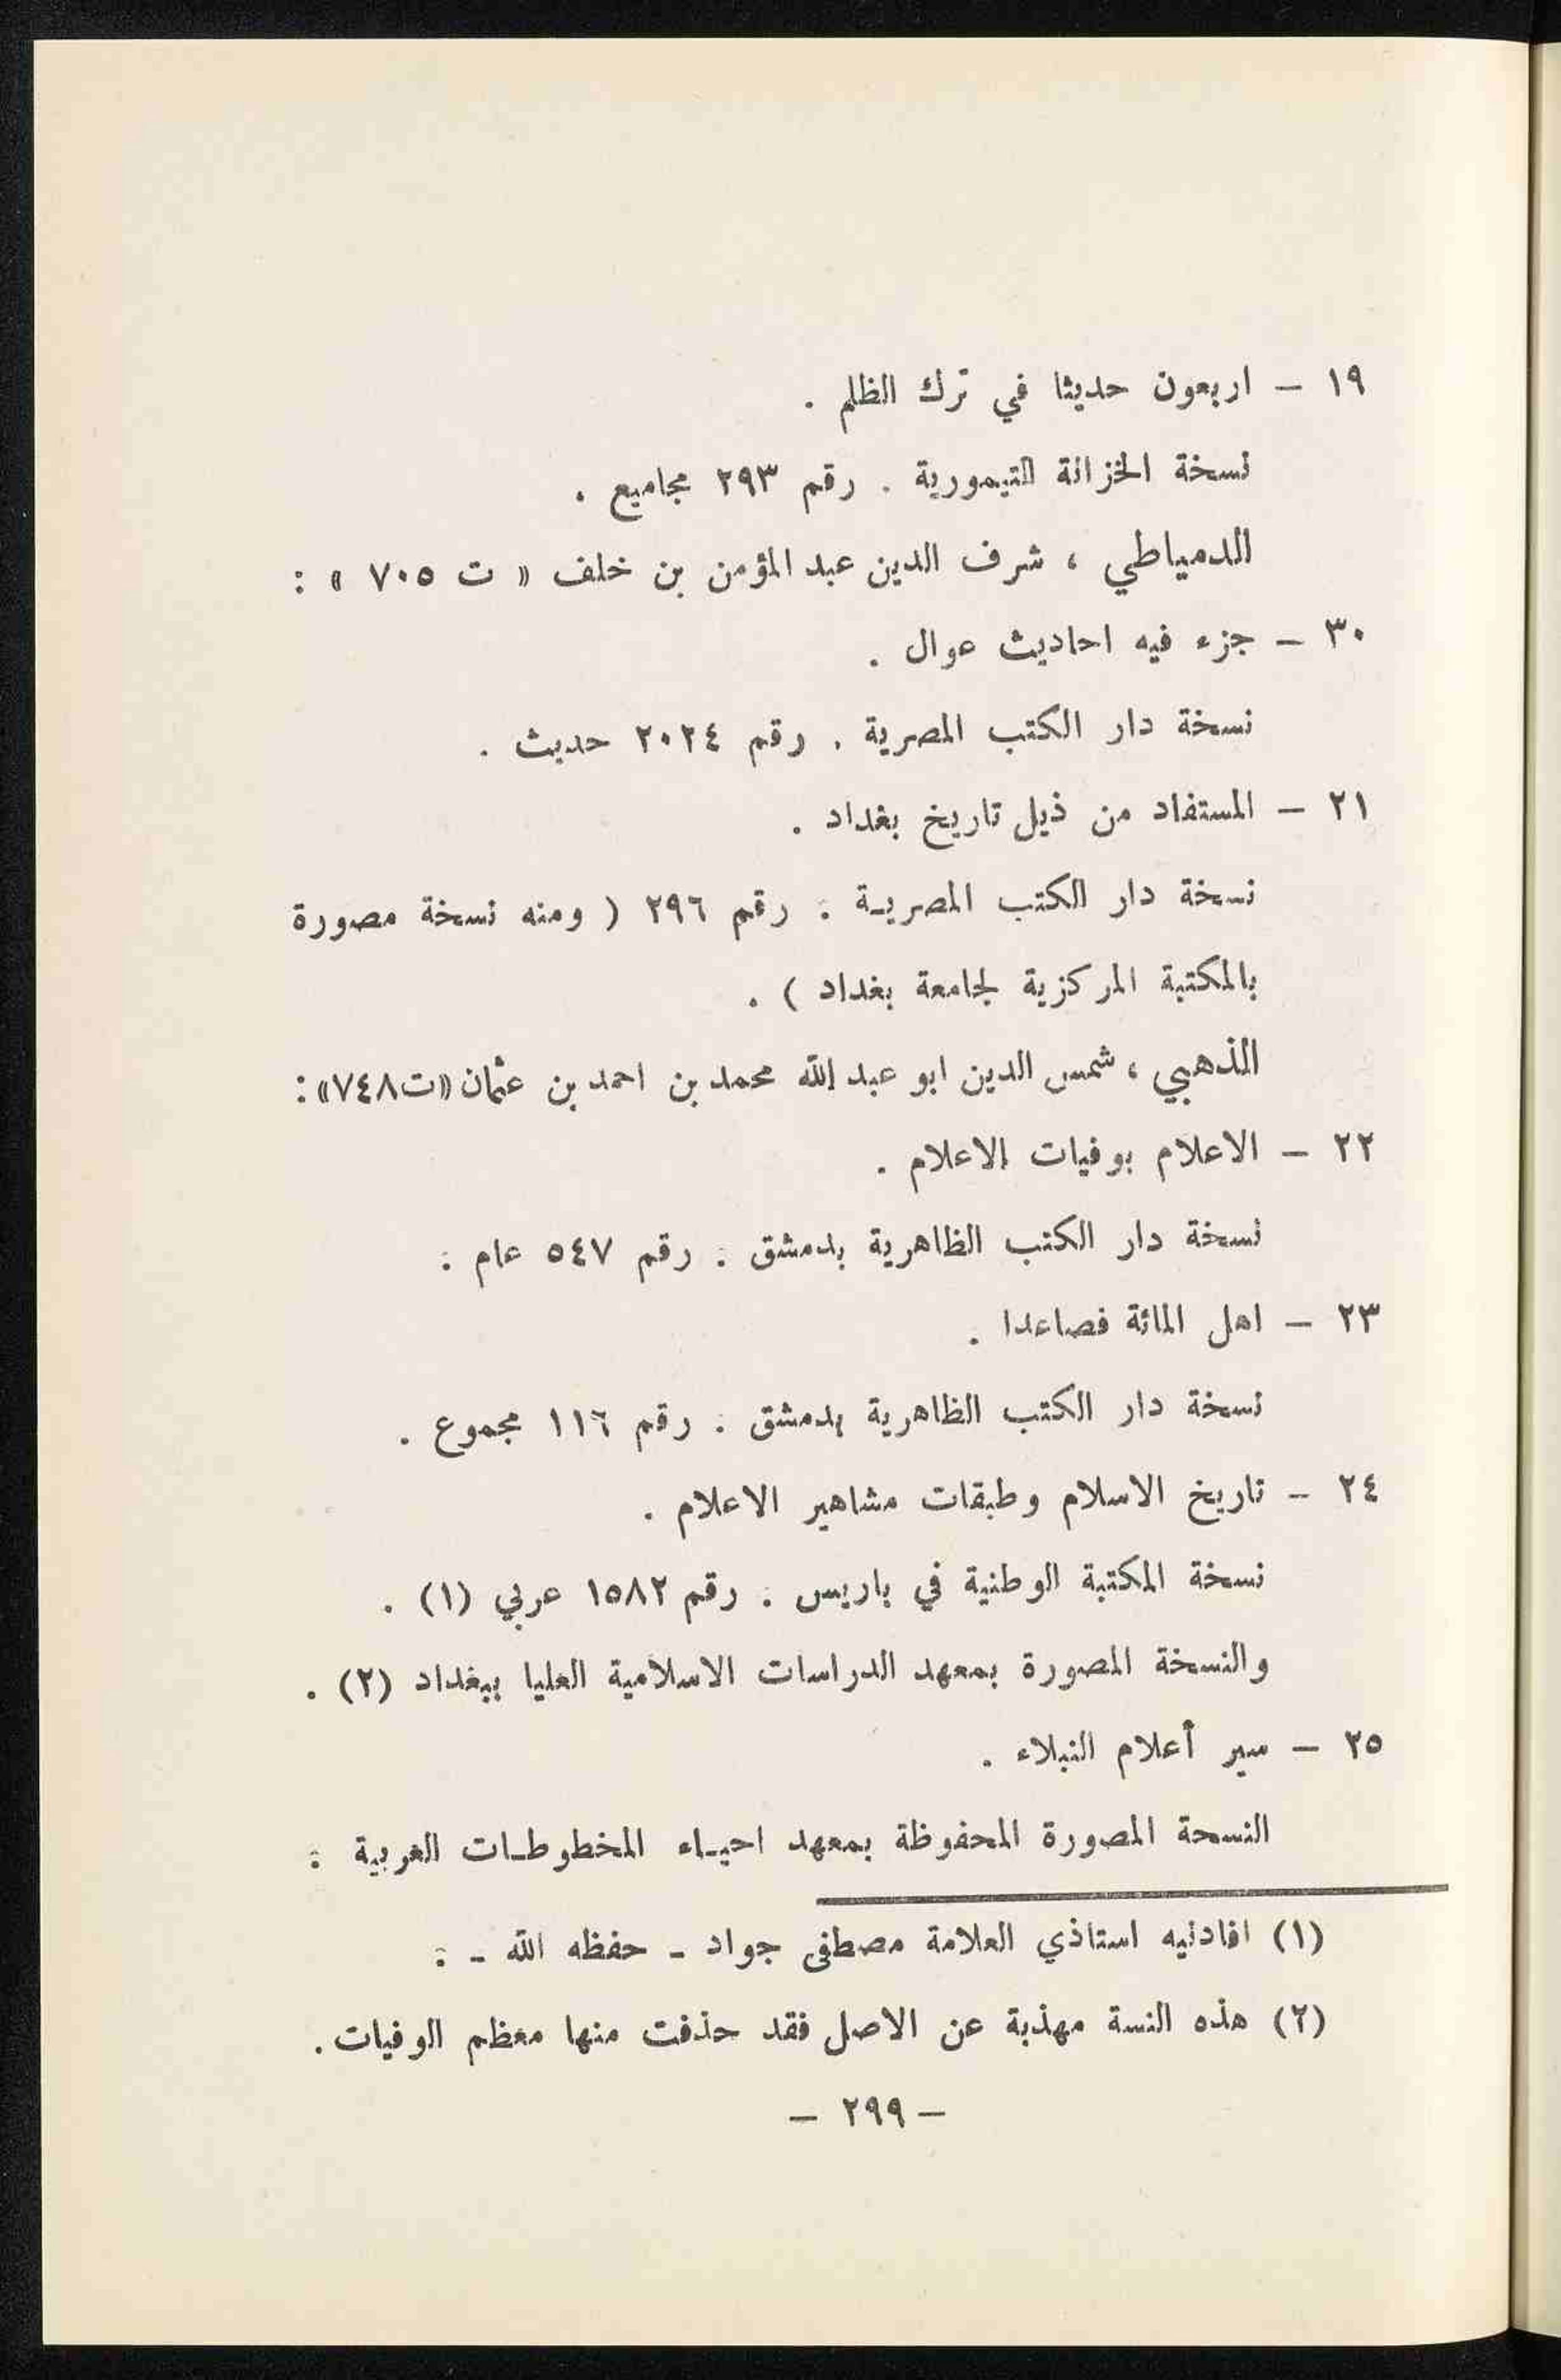 ١٩ – اربعون حديثا في ترك الظلم .
نسخة الخزانة التيمورية . رقم ٢٩٣ مجاميع .
الدمياطي ، شرف الدين عبد المؤمن بن خلف « ت ٧٠٥ » :
٣٠ – جزء فيه احاديث عوال .
نسخة دار الكتب المصرية . رقم ٢٠٢٤ حديث .
٢١ – المستفاد من ذيل تاريخ بغداد .
نسخة دار الكتب المصريـة : رقم ٢٩٦ ( ومنه نسخة مصورة
بالمكتبة المركزية لجامعة بغداد ) .
الذهبي ، شمس الدين ابو عبد الله محمد بن احمد بن عثمان «ت٧٤٨» :
٢٢ – الاعلام بوفيات الاعلام .
نسخة دار الكتب الظاهرية بدمشق : رقم ٥٤٧ عام :
٢٣ – اهل المائة فصاعدا .
نسخة دار الكتب الظاهرية بدمشق : رقم ١١٦ مجموع .
٢٤ – تاريخ الاسلام وطبقات مشاهير الاعلام .
نسخة المكتبة الوطنية في باريس : رقم ١٥٨٢ عربي (١) .
والنسخة المصورة بمعهد الدراسات الاسلامية العليا ببغداد (٢) .
٢٥ – سير أعلام النبلاء .
النسحة المصورة المحفوظة بمعهد احيـاء المخطوطـات الغربية :
(١) افادنيه استاذي العلامة مصطفى جواد - حفظه الله - :
(٢) هذه النسة مهذبة عن الاصل فقد حذفت منها معظم الوفيات .
– ٢٩٩ –